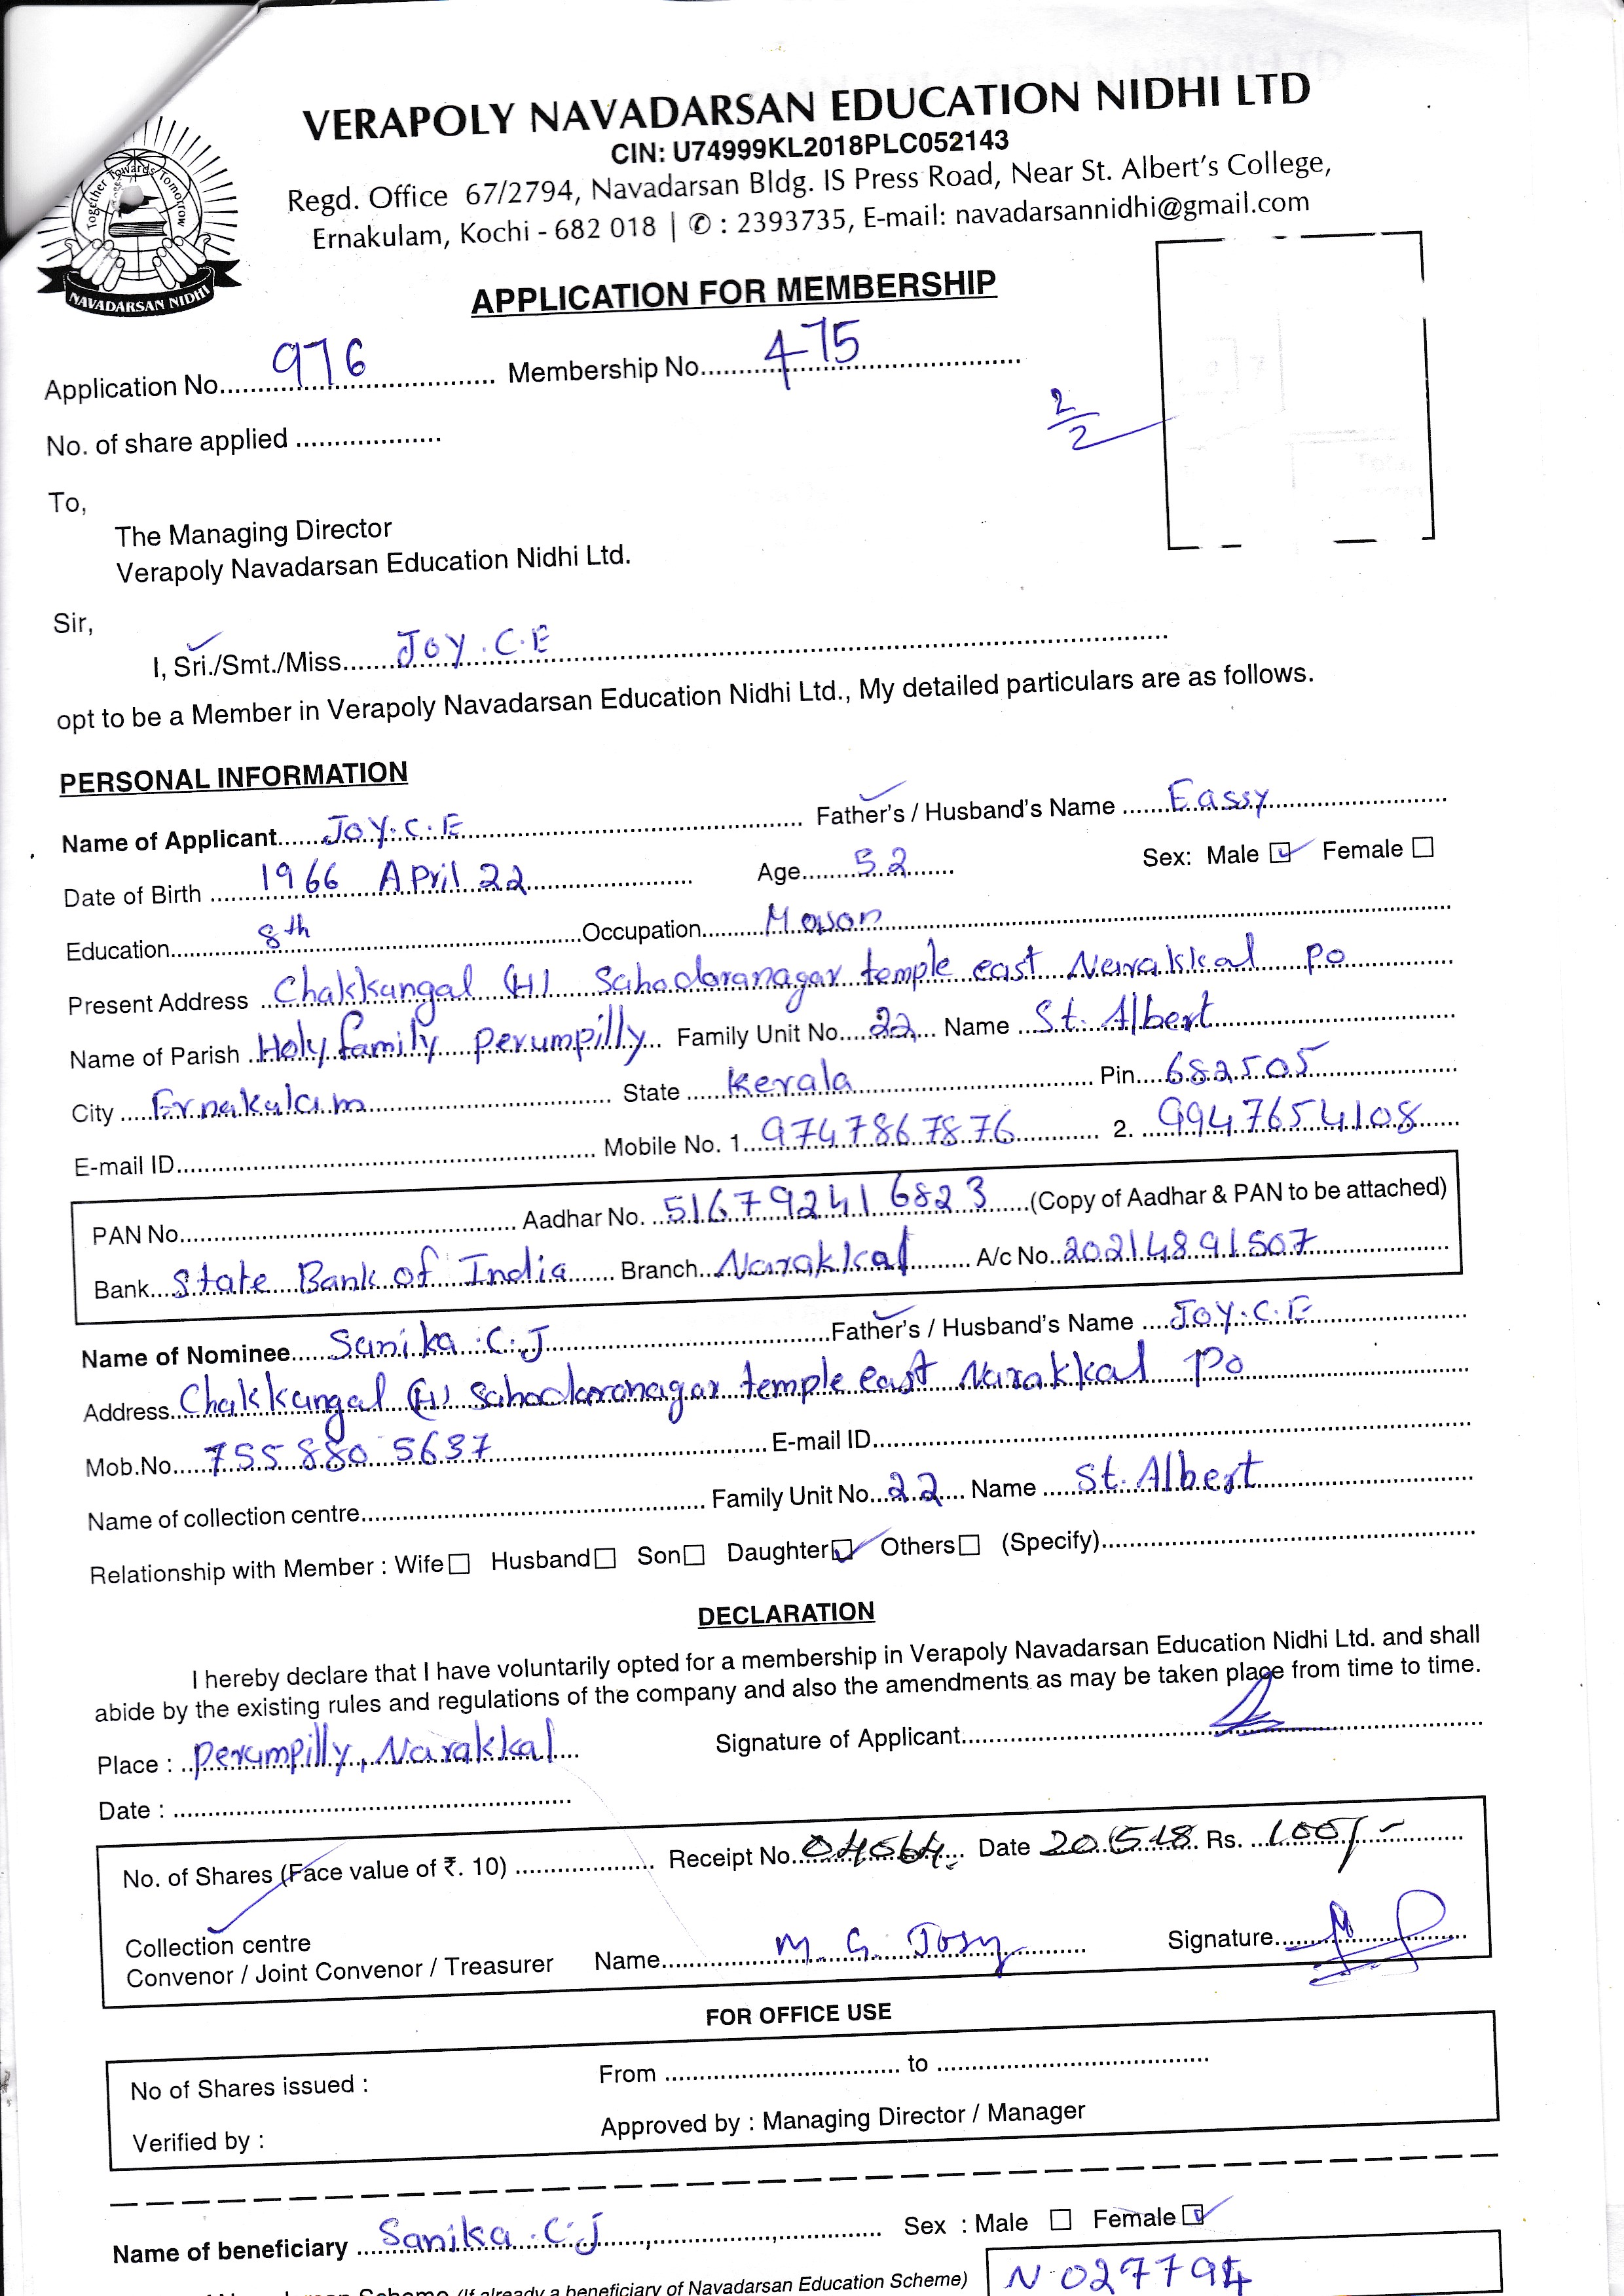 Together Towards Tomorrow
NAVADARSAN NIDHI
VERAPOLY NAVADARSAN EDUCATION NIDHI LTD
CIN: U74999KL2018PLC052143
Regd. Office 67/2794, Navadarsan Bldg. IS Press Road, Near St. Albert's College,
Ernakulam, Kochi - 682 018 | ✆ : 2393735, E-mail: navadarsannidhi@gmail.com
APPLICATION FOR MEMBERSHIP
Application No. 976 Membership No. 475
2/2
No. of share applied
To,
The Managing Director
Verapoly Navadarsan Education Nidhi Ltd.
Sir,
I, Sri./Smt./Miss. JOY.C.E
opt to be a Member in Verapoly Navadarsan Education Nidhi Ltd., My detailed particulars are as follows.
PERSONAL INFORMATION
Name of Applicant JOY.C.E Father's / Husband's Name Eassy
Date of Birth 1966 April 22 Age 52 Sex: Male ☑ Female ☐
Education 8th Occupation
Present Address Chakkangal (H) Sahodaranagar temple east Narakkal PO
Name of Parish Holy family Perumpilly Family Unit No. 22 Name St. Albert
City Ernakulam State Kerala Pin 682505
E-mail ID Mobile No. 1. 9747867876 2. 9947654108
PAN No. Aadhar No. 516792416823 (Copy of Aadhar & PAN to be attached)
Bank State Bank of India Branch Narakkal A/c No. 20214891507
Name of Nominee Sanika.C.J Father's / Husband's Name JOY.C.E
Address Chakkangal (H) Sahodaranagar temple east Narakkal PO
Mob.No. 755 880 5637 E-mail ID
Name of collection centre Family Unit No. 22 Name St. Albert
Relationship with Member : Wife ☐ Husband ☐ Son ☐ Daughter ☑ Others ☐ (Specify)
DECLARATION
I hereby declare that I have voluntarily opted for a membership in Verapoly Navadarsan Education Nidhi Ltd. and shall
abide by the existing rules and regulations of the company and also the amendments as may be taken place from time to time.
Place : Perumpilly, Narakkal Signature of Applicant
Date :
No. of Shares (Face value of ₹. 10) Receipt No. 04064 Date 20.5.18 Rs. 100/-
Collection centre
Convenor / Joint Convenor / Treasurer Name M. G. Josy Signature
FOR OFFICE USE
No of Shares issued : From to
Verified by : Approved by : Managing Director / Manager
Name of beneficiary Sanika.C.J Sex : Male ☐ Female ☑
(If already a beneficiary of Navadarsan Education Scheme) N 027794